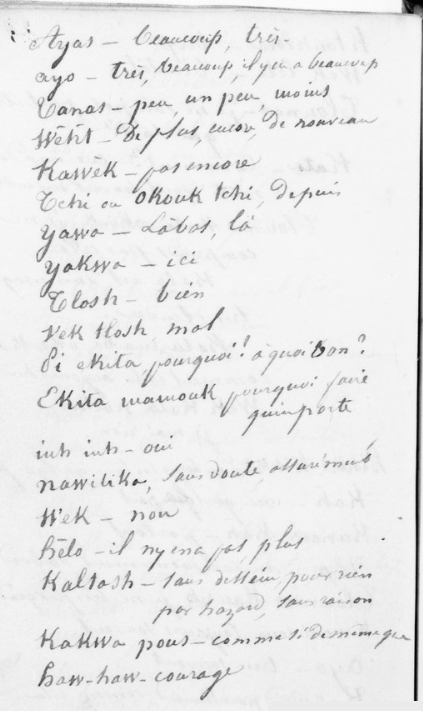 Ayas - beaucoup, très-
ayo - très, beaucoup, il y en a beaucoup
Tanas - peu, un peu, moins
Wêrt - De plus, encore, de nouveau
Kawêk - pas encore
Tchi ou okouk tchi, depuis
yawa - Làbas, là
yakwa - ici
Tlosh - bien
Wek tlosh mal
Pi ekita, pourquoi! à quoi bon?
Ekita mamouk pourquoi faire
qu'importe
inh inh - oui
nawitika, sans doute, assurément
Wek - non
hêlo - il n'y en a pas, plus
Kaltash - sans dessein, pour rien
par hazard, sans raison
Kakwa pous - comme si de même que
haw-haw - courage